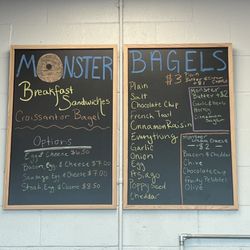 MONSTER
Breakfast
Sandwiches
Croissant or Bagel
Options
Egg & Cheese $6.50
Bacon, Egg & Cheese $7.00
Sausage, Egg & Cheese $7.00
Steak, Egg & Cheese $8.50
BAGELS
$3
Plain
Salt
Chocolate Chip
French Toast
Cinnamon Raisin
Everything
Garlic
Onion
Egg
Asiago
Poppy Seed
Cheddar
Plain
Butter
Monster
Butter +$2
Garlic & Herb
Honey
Cinnamon
Sugar
Monster
Cream Cheese
- $2 -
Bacon & Cheddar
Chive
Chocolate Chip
Fruity Pebbles
Olive